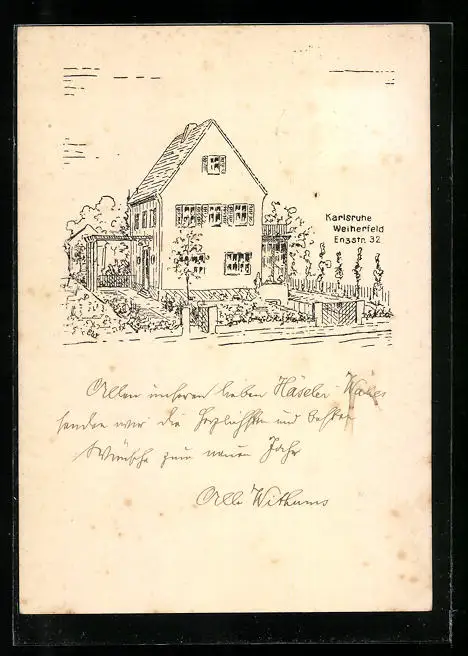 Karlsruhe
Weiherfeld
Enzstr. 32
Allen unseren lieben Häseler
senden wir die herzlichsten und besten
Wünsche zum neuen Jahr
Alle Withums